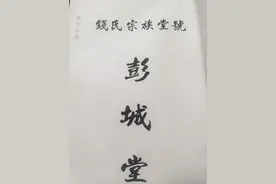 錢氏宗族堂號
彭城堂